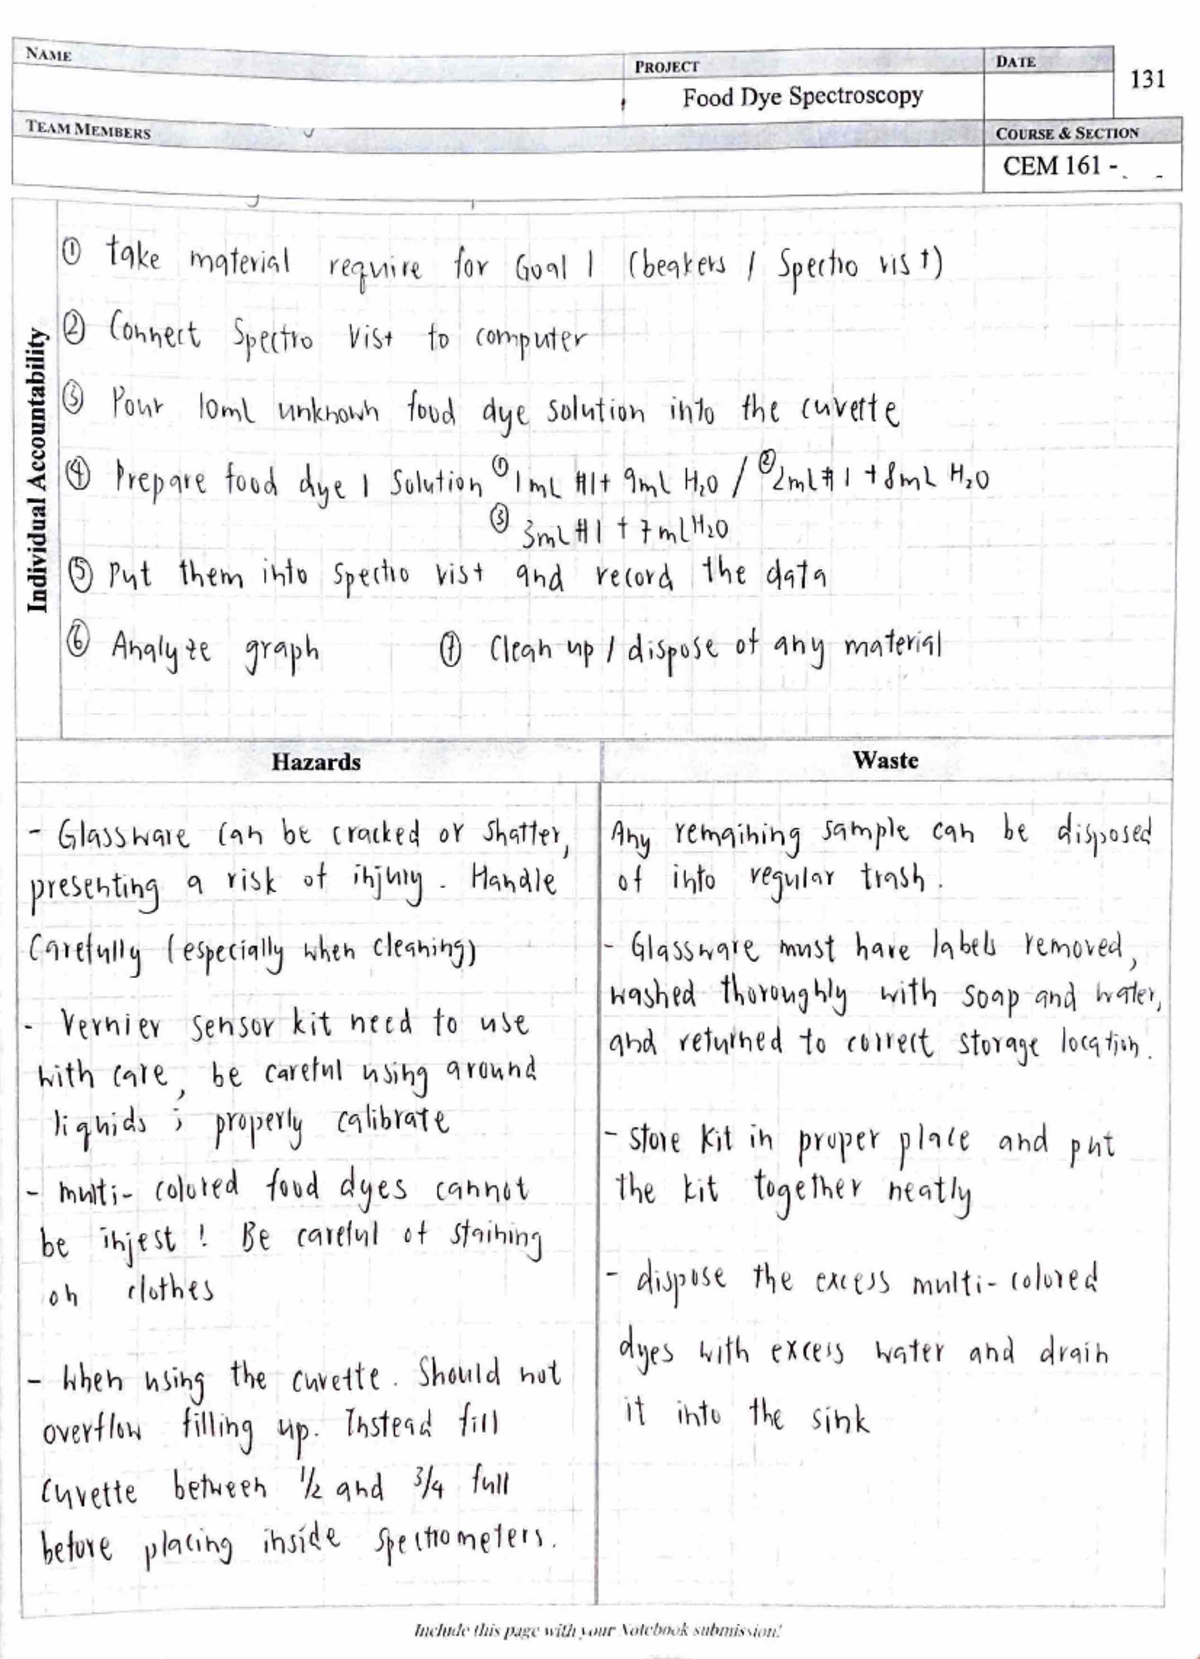 NAME
PROJECT
DATE
131
Food Dye Spectroscopy
TEAM MEMBERS
COURSE & SECTION
CEM 161 -
Individual Accountability
① take material require for Goal 1 (beakers / Spectro vist)
② Connect Spectro Vist to computer
③ Pour 10mL unknown food dye solution into the cuvette
④ Prepare food dye 1 Solution ① 1mL #1+ 9mL H₂O / ② 2mL #1 + 8mL H₂O
③ 3mL #1 + 7mL H₂O
⑤ Put them into spectro vist and record the data
⑥ Analyze graph ⑦ Clean up / dispose of any material
Hazards
- Glassware can be cracked or shatter,
presenting a risk of injury. Handle
Carefully (especially when cleaning)
- Vernier sensor kit need to use
with care, be careful using around
liquids ; properly calibrate
- multi-colored food dyes cannot
be injest ! Be careful of staining
on clothes
- When using the cuvette. Should not
overflow filling up. Instead fill
cuvette between 1/2 and 3/4 full
before placing inside spectrometers.
Waste
Any remaining sample can be disposed
of into regular trash.
- Glassware must have labels removed,
washed thoroughly with soap and water,
and returned to correct storage location.
- store kit in proper place and put
the kit together neatly
- dispose the excess multi-colored
dyes with excess water and drain
it into the sink
Include this page with your Notebook submission!